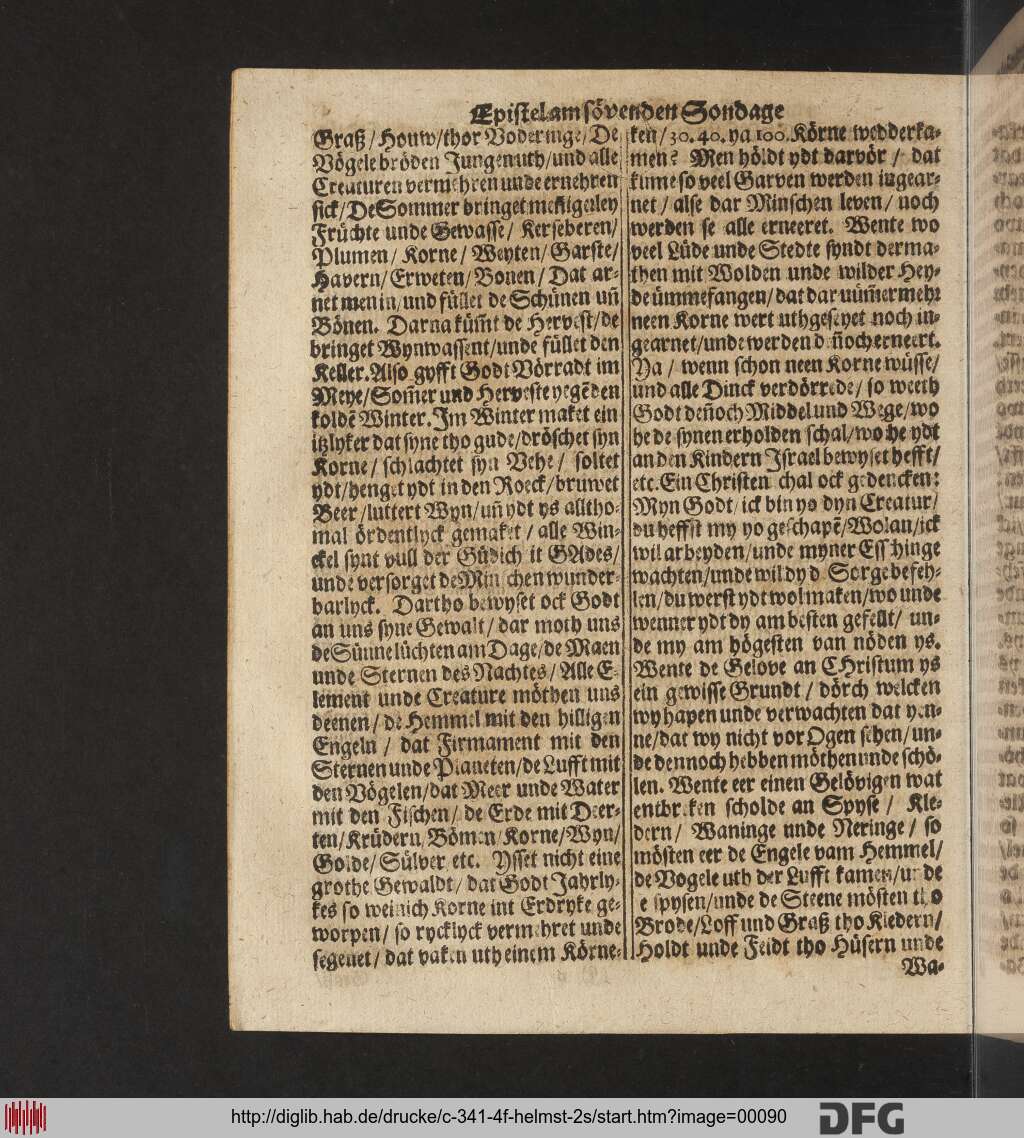 Epistel am sövenden Sondage
Graß / Houw / thor Voderinge / De
Vögele bröden Jungen uth / und alle
Creaturen vermehren unde ernehren
sick / De Sommer bringet mennigerley
Früchte unde Gewasse / Kerseberen /
Plumen / Korne / Weyten / Garste /
Havern / Erweten / Bonen / Dat ar-
net men in / und füllet de Schünen uñ
Bönen. Darna kümt de Hervest / de
bringet Wynwassent / unde füllet den
Keller. Also gyfft Godt Vörradt im
Meye / Som̃er und Herveste yegẽ den
koldẽ Winter. Im Winter maket ein
itzlyker dat syne tho gude / dröschet syn
Korne / schlachtet syn Vehe / soltet
ydt / henget ydt in den Roeck / bruwet
Beer / luttert Wyn / uñ ydt ys alltho-
mal ördentlyck gemaket / alle Win-
ckel synt vull der Güdich it GAdes /
unde versorget de Min chen wunder-
barlyck. Dartho bewyset ock Godt
an uns syne Gewalt / dar moth uns
de Sünne lüchten am Dage / de Maen
unde Sternen des Nachtes / Alle E-
lement unde Creature möthen uns
deenen / de Hemmel mit den hilligen
Engeln / dat Firmament mit den
Sternen unde Planeten / de Lufft mit
den Vögelen / dat Meer unde Water
mit den Fischen / de Erde mit Deer-
ten / Krüdern / Bömen / Korne / Wyn /
Golde / Sülver etc. Ysset nicht eine
grothe Gewaldt / dat Godt Jahrly-
kes so weinich Korne int Erdryke ge-
worpen / so rycklyck vermehret unde
segenet / dat vaken uth einem Körne-
ken / 30. 40. ya 100. Körne wedderka-
men? Men höldt ydt darvör / dat
kunne so veel Garven werden ingear-
net / alse dar Minschen leven / noch
werden se alle erneeret. Wente wo
veel Lüde unde Stedte syndt derma-
then mit Wolden unde wilder Hey-
de ümmefangen / dat dar nüm̃ermehr
neen Korne wert uthgeseyet noch in-
gearnet / unde werden deñoch erneert.
Ya / wenn schon neen Korne wüsse /
und alle Dinck verdörrede / so weeth
Godt deñoch Middel und Wege / wo
he de synen erholden schal / wo he ydt
an den Kindern Israel bewyset hefft /
etc. Ein Christen chal ock gedencken:
Myn Godt / ick bin yo dyn Creatur /
du heffst my yo geschapẽ / Wolan / ick
wil arbeyden / unde myner Esschinge
wachten / unde wil dy d Sorge befeh-
len / du werst ydt wol maken / wo unde
wenner ydt dy am besten gefellt / un-
de my am högesten van nöden ys.
Wente de Gelove an CHristum ys
ein gewisse Grundt / dörch welcken
wy hapen unde verwachten dat yen-
ne / dat wy nicht vor Ogen sehen / un-
de dennoch hebben möthen unde schö-
len. Wente eer einen Gelövigen wat
entbreken scholde an Spyse / Kle-
dern / Waninge unde Neringe / so
mösten eer de Engele vam Hemmel /
de Vogele uth der Lufft kamen / unde
e spysen / unde de Steene mösten tho
Brode / Loff und Graß tho Kledern /
Holdt unde Feldt tho Hüsern unde
Wa-
http://diglib.hab.de/drucke/c-341-4f-helmst-2s/start.htm?image=00090
DFG